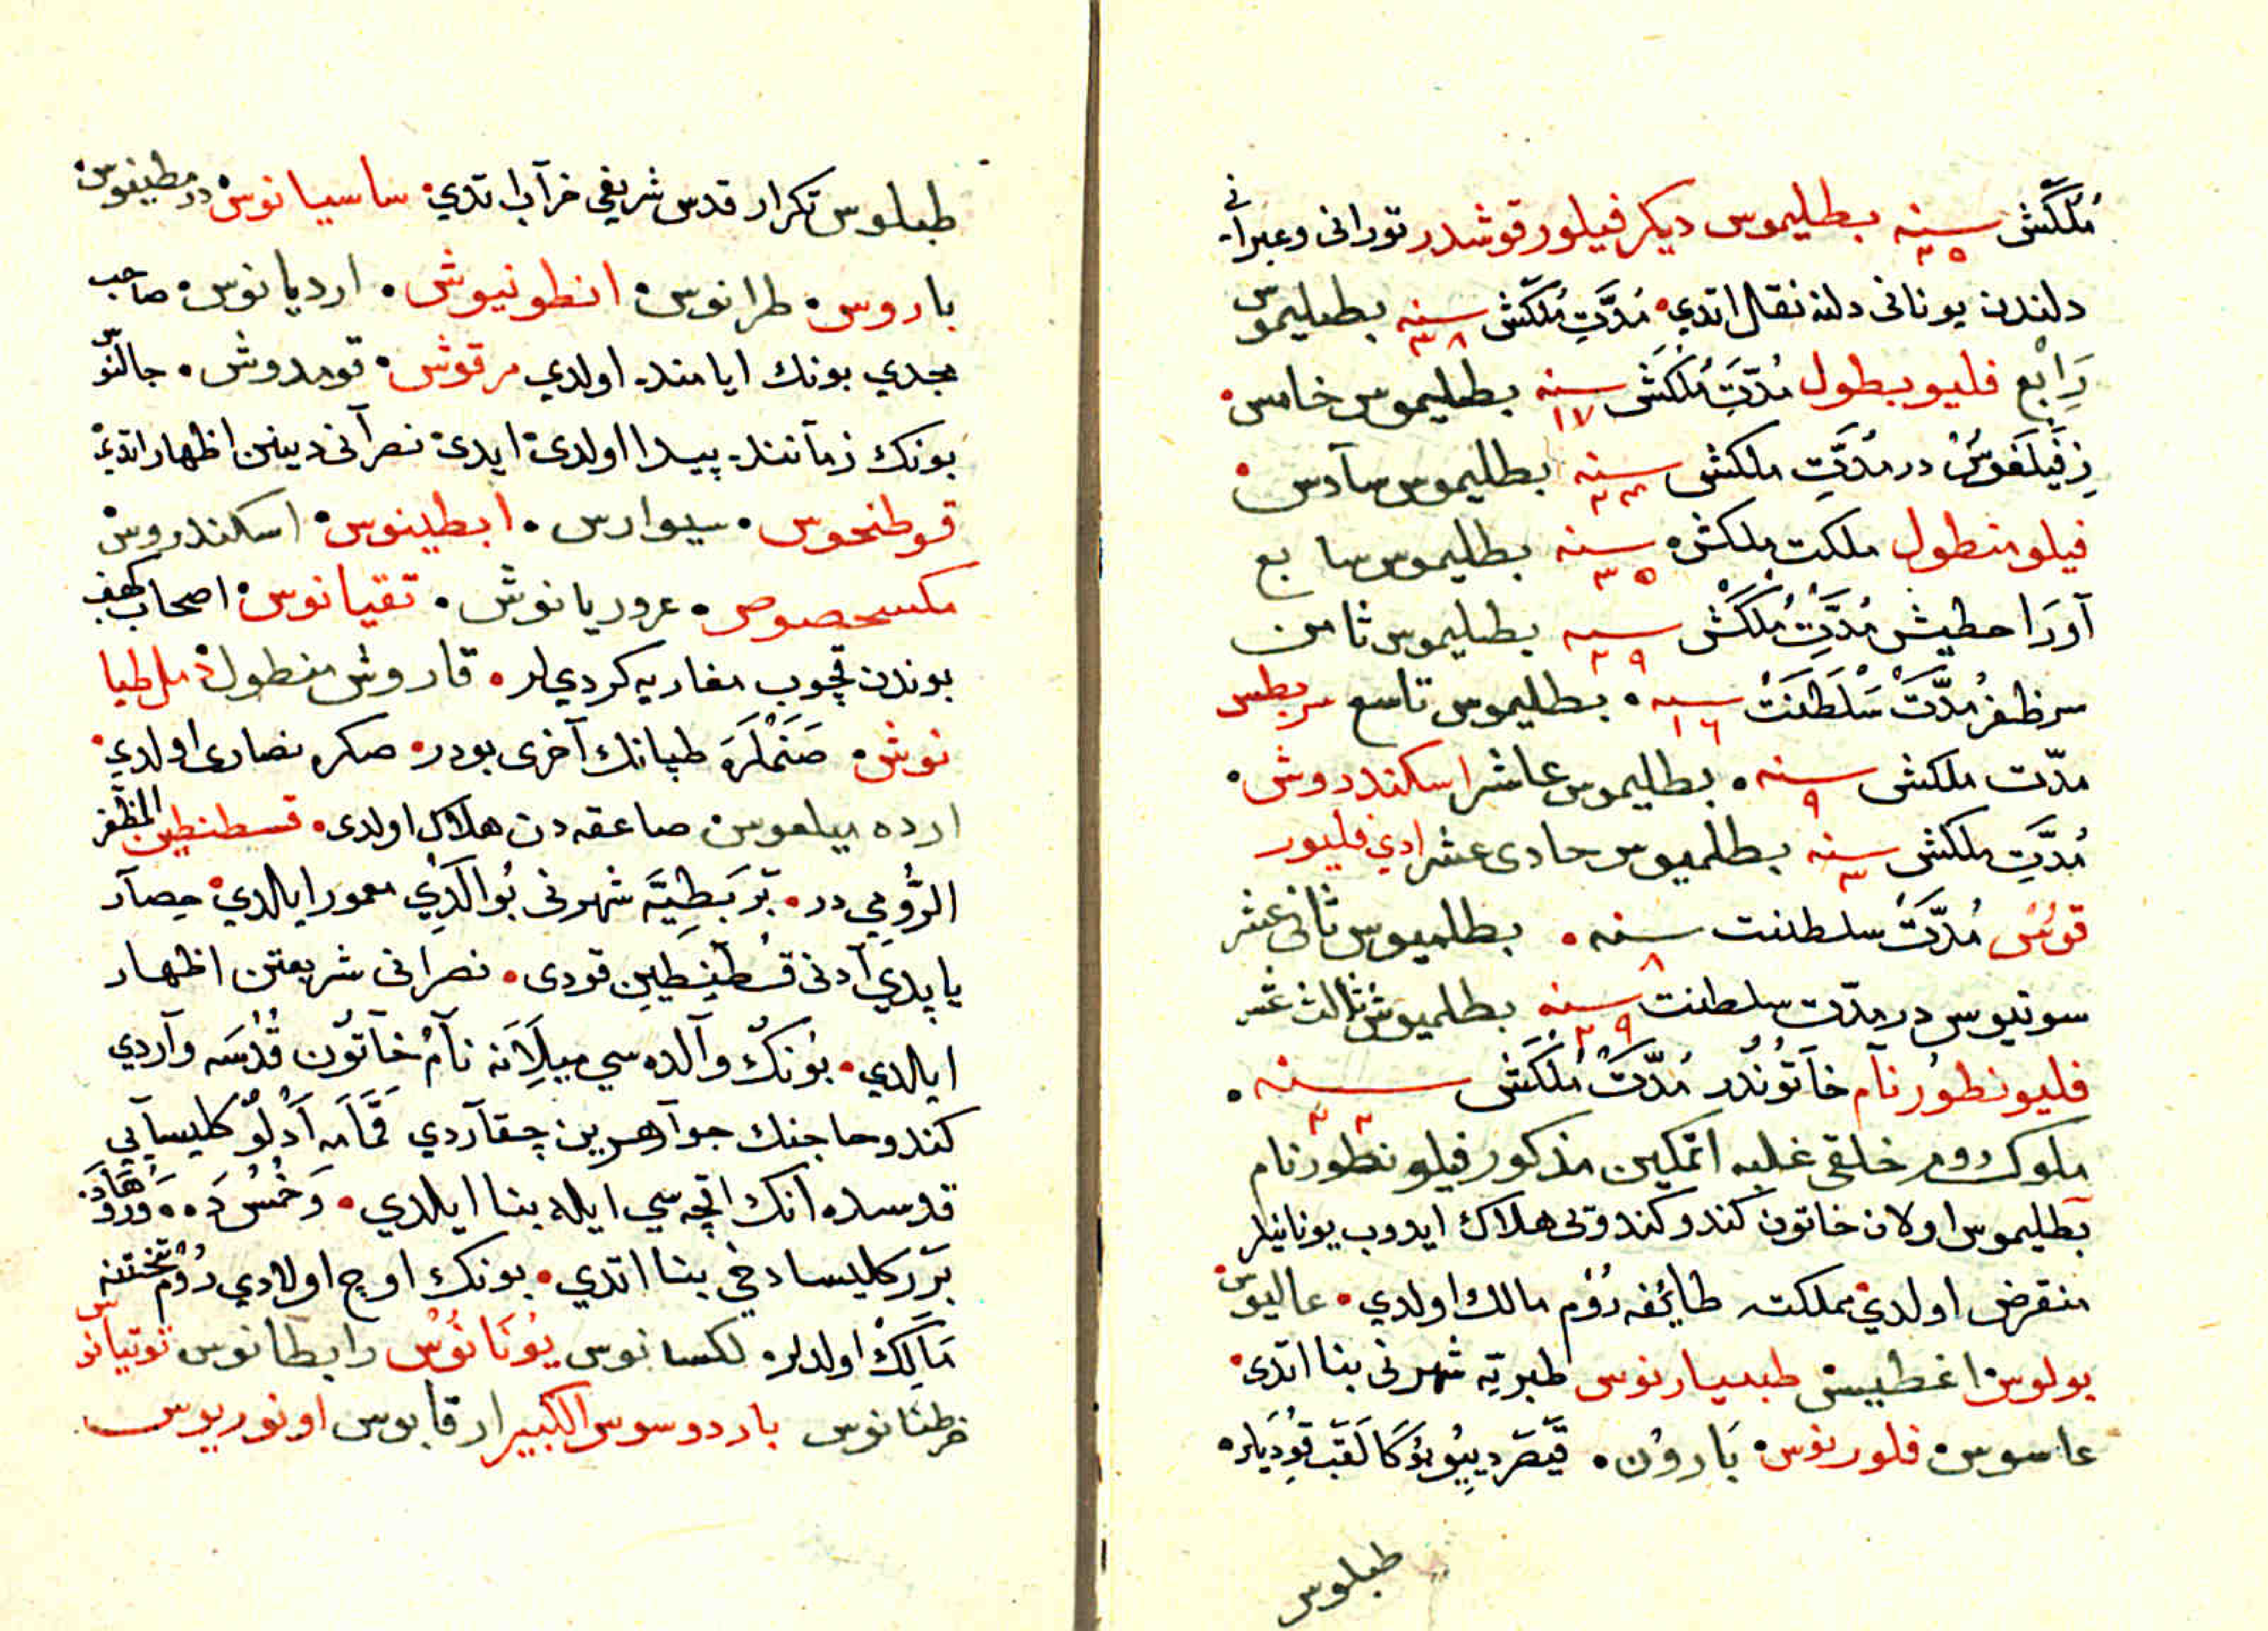 مُلكَش سنه ٣٥ بطليموس ديكر فيلور قوشدر توراني و عبرآني
دلندن يوناني دلنه نقال اتدي مُدّتِ مُلكَش سنه ٣٨ بطليموس
رَابْع فليوبطول مُدّتِ مُلكَش سنه ١٧ بطليموس خامس
زِفَيلَفَوسْ در مُدّتِ ملكش سنه ٢٣ بطليموس سآدس
فيلو منطول ملكت ملكش سنه ٣٥ بطليموس سابع
آورَاحطيش مُدَّتِ مُلكَشْ سنه ٢٩ بطليموس ثامن
سرظفر مُدَّتَ سَلطَنَتْ سنه ١٦ بطليموس تاسع سربطس
مدّت ملكش سنه ٩ بطليموس عاشر اسكندروش
مُدّتِ ملكش سنه ٣ بطلميوس حادى عشر ادي فليور
قوسُ مُدّتْ سلطنت سنه ٨ بطلميوس ثانى عشر
سوتيوس در مدّت سلطنت سنه ٢٩ بطلميوش ثالث عشر
فليونطور نآم خآتُوندُر مُدّتْ مُلكَش سنه ٢٢
ملوك روم خلقى غلبه اتمكين مذكور فيلو نطور نام
بطليموس اولان خاتون كندو كندوتى هلاك ايدوب يونانيلر
منقرض اولدي مملكته طائفه رُوم مالك اولدي عاليوس
بولوس اغطيش طبيارنوس طبريّه شهرنى بنا اتدى
عاسوس فلورنوس بَارونْ قيَصَر ديِيُو بُوكَا لَقَبْ قودِيَلر
طبلوس
طبلوس تكرار قدس شريفي خرآب اتدي ساسيانوس در مطيغوس
باروس طرانوس انطونيوش ارديانوس صاحب
مجدي بونك ايامنده اولدي مرقوش قومدوش جالنوّس
بونك زمآننده پيدا اولدى ايدى نصرآنى دينن اظهار اتدى
قوطنحوس سيوارس ابطينوس اسكندروش
مكسحصوص عروريانوش تقيانوس اصحاب كهف
بوندن قچوب مغاريه كرديلر قاروش منطول مل طيا
نوش صَنمْلَرَه طپانك آخرى بودر صكره نصارى اولدي
ارده بيلعوس صاعقه دن هلاك اولدى قسطنطين المظفر
الرُّومي در بَزبَطِيَّه شهرنى بُو الدِي معمور ايلدي حصآر
ياپدي آدنى قُسْطَنِطِين قودى نصرانى شريعتن اظهار
ايلدي بوُنكْ وآلده سي ميلِآنه نآم خآتُون قُدْسَه وآردي
كندو حاجنك جوآهرين چقآردي قَمَّامَه آدْلُو كليسآيي
قدسده انك اقچه سي ايله بنا ايلدي وَخُمُسْ دَه وَرُوهَادَه
بَرَر كليسا دخي بنا اتدي بونك اوچ اولادي رُوم تختنه
مَالِكْ اولدلر لكسانوس يُونَانُوسْ رابطانوس توتيانوس
خرطنانوس باردوسوس الكبير ارقابوس اونوريوس